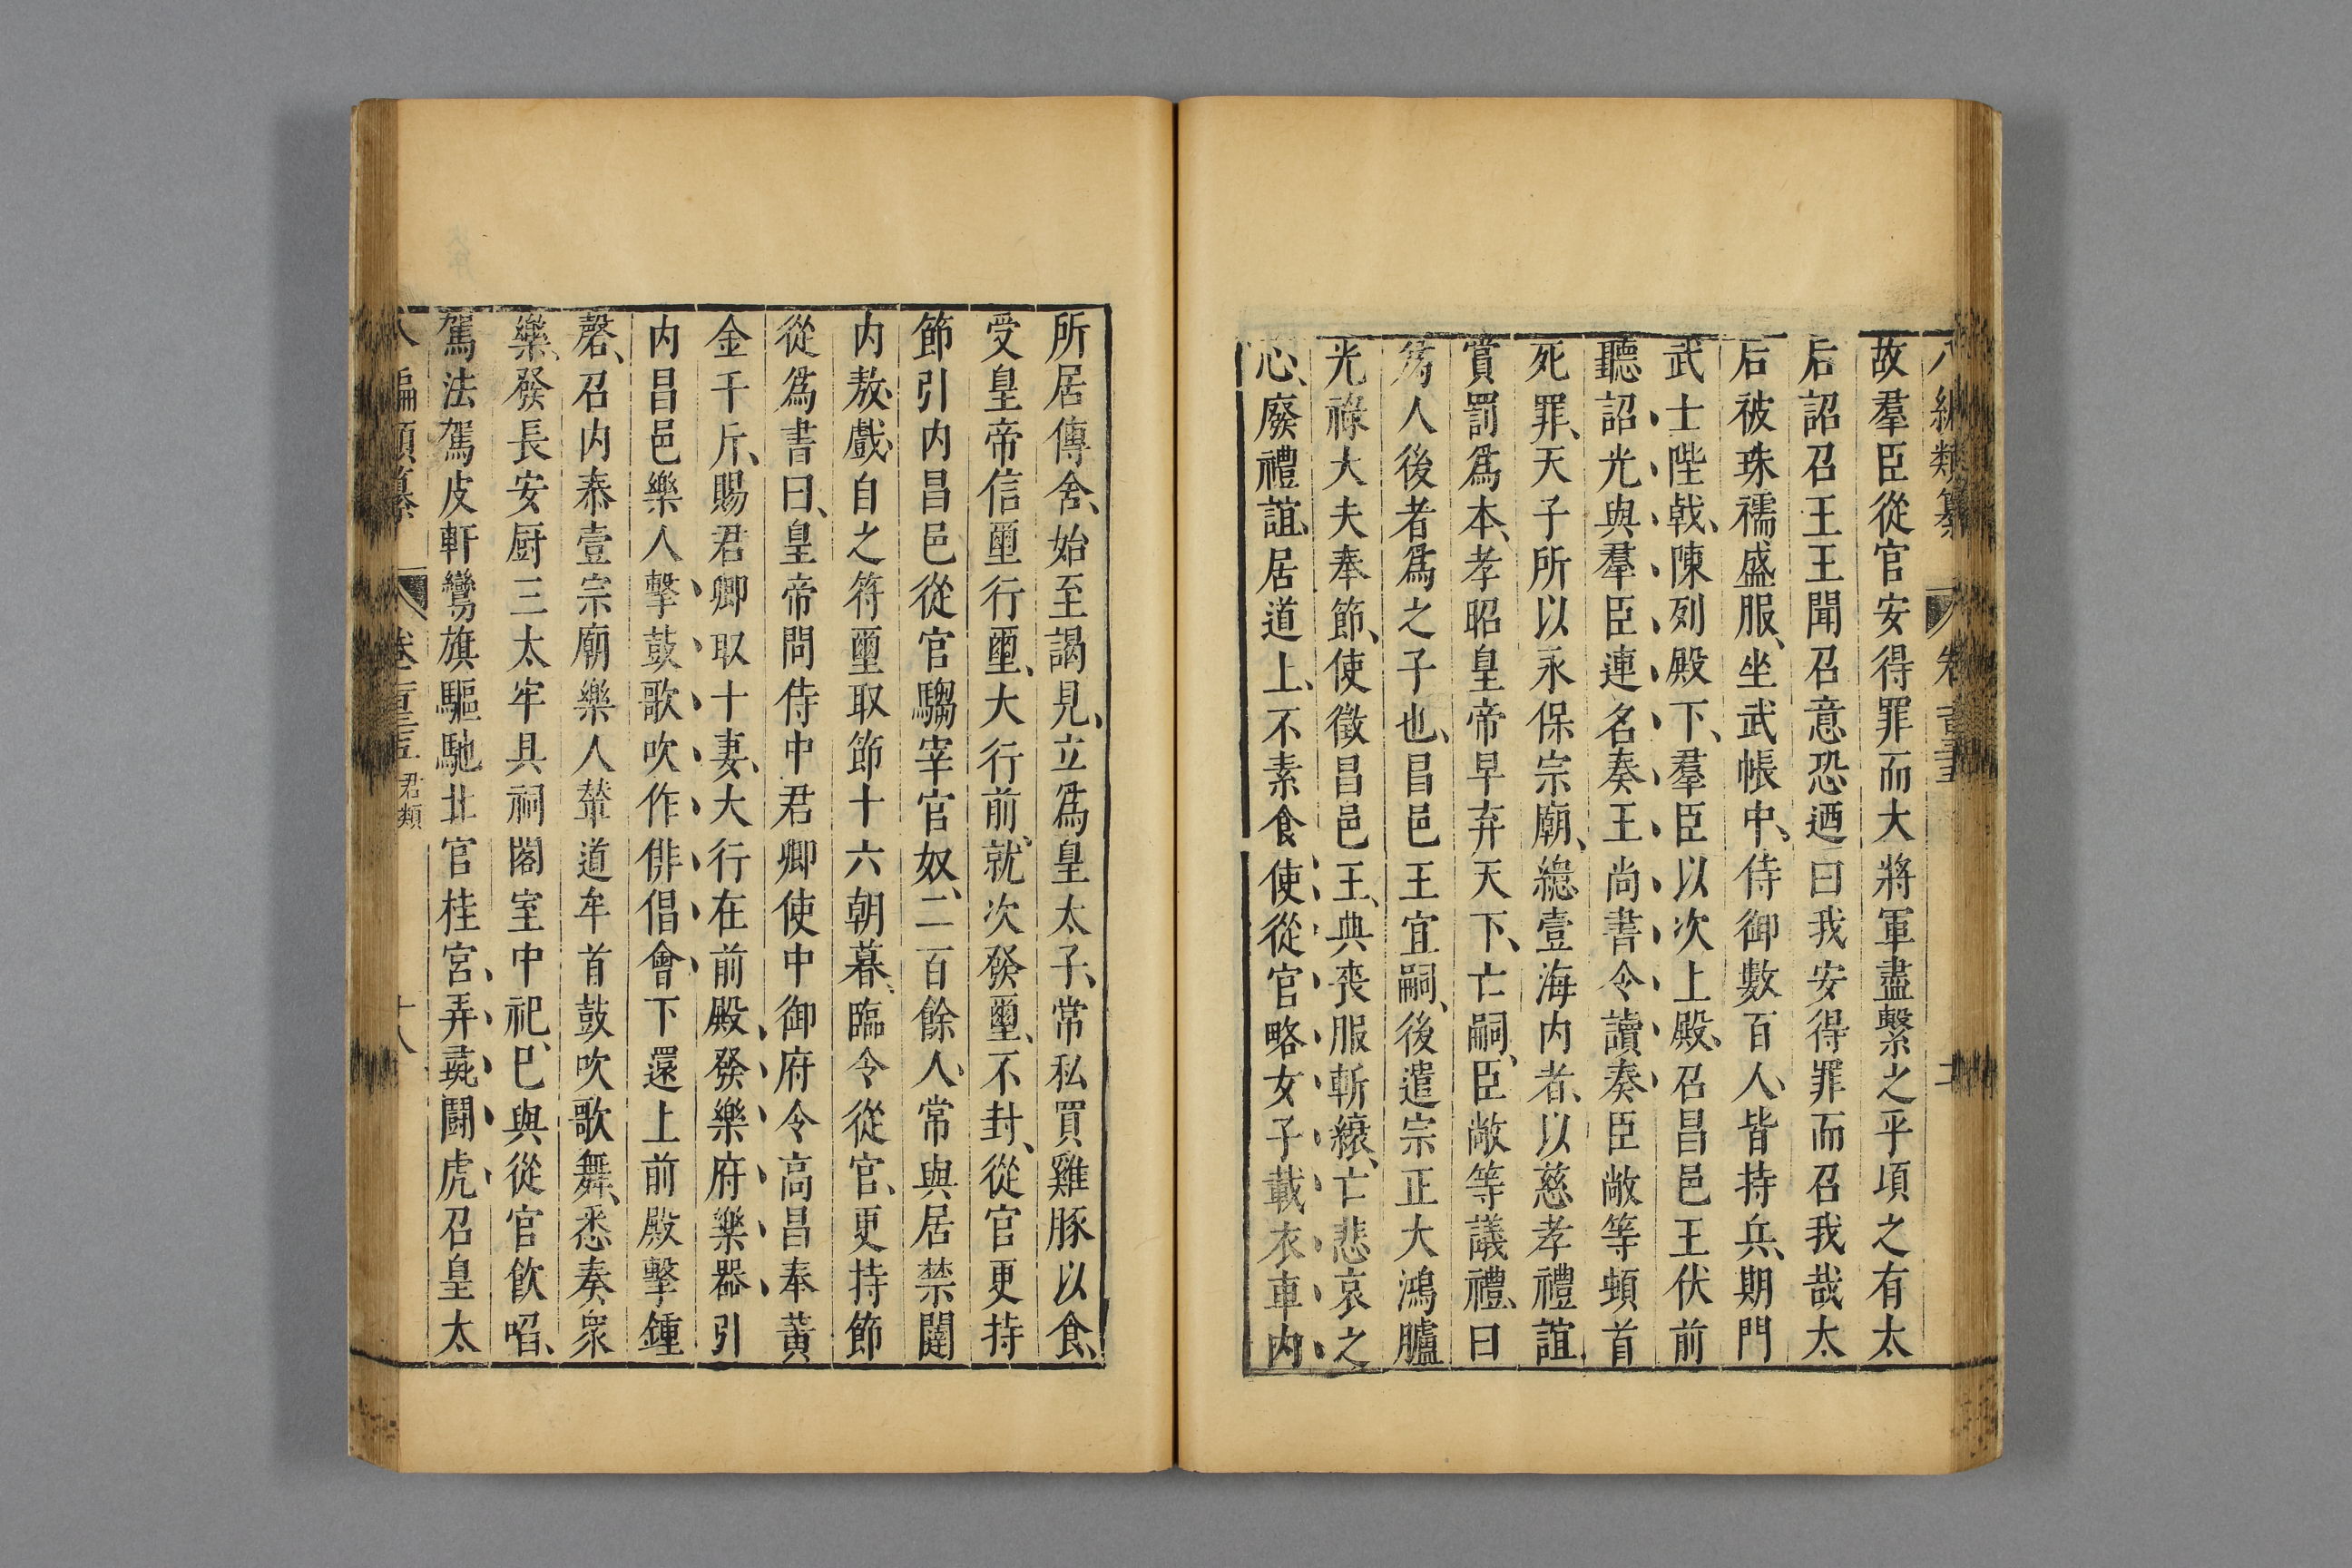 故羣臣從官安得罪而大將軍盡繫之乎項之有太
后詔召王王聞召意恐迺曰我安得罪而召我哉太
后被珠襦盛服、坐武帳中、侍御數百人、皆持兵、期門
武士陛戟、陳列殿下、羣臣以次上殿、召昌邑王伏前
聽詔光與羣臣連名奏王尚書令讀奏臣敞等頓首
死罪、天子所以永保宗廟、緫壹海内者、以慈孝禮誼
賞罰爲本、孝昭皇帝早弃天下、亡嗣、臣敞等議禮、曰
爲人後者爲之子也、昌邑王宜嗣、後遣宗正大鴻臚
光祿大夫奉節、使徵昌邑王、典喪服斬縗、亡悲哀之
心、廢禮誼、居道上、不素食使從官略女子載衣車内
所居傳舍、始至謁見、立爲皇太子、常私買雞豚以食、
受皇帝信璽行璽、大行前、就次發璽、不封、從官更持
節引内昌邑從官騶宰官奴、二百餘人、常與居禁闥
内敖戲、自之符璽取節十六朝暮、臨令從官、更持節
從爲書曰、皇帝問侍中君卿使中御府令高昌奉黃
金千斤、賜君卿取十妻、大行在前殿、發樂府樂器引
内昌邑樂人擊鼓歌吹作俳倡會下還上前殿擊鍾
磬、召内泰壹宗廟樂人輦道牟首鼓吹歌舞、悉奏衆
樂、發長安厨三太牢具祠閣室中祀、已與從官飲啗、
駕法駕皮軒鸞旗驅馳北宫桂宮、弄彘闘虎召皇太
編類纂 卷 君類 十八